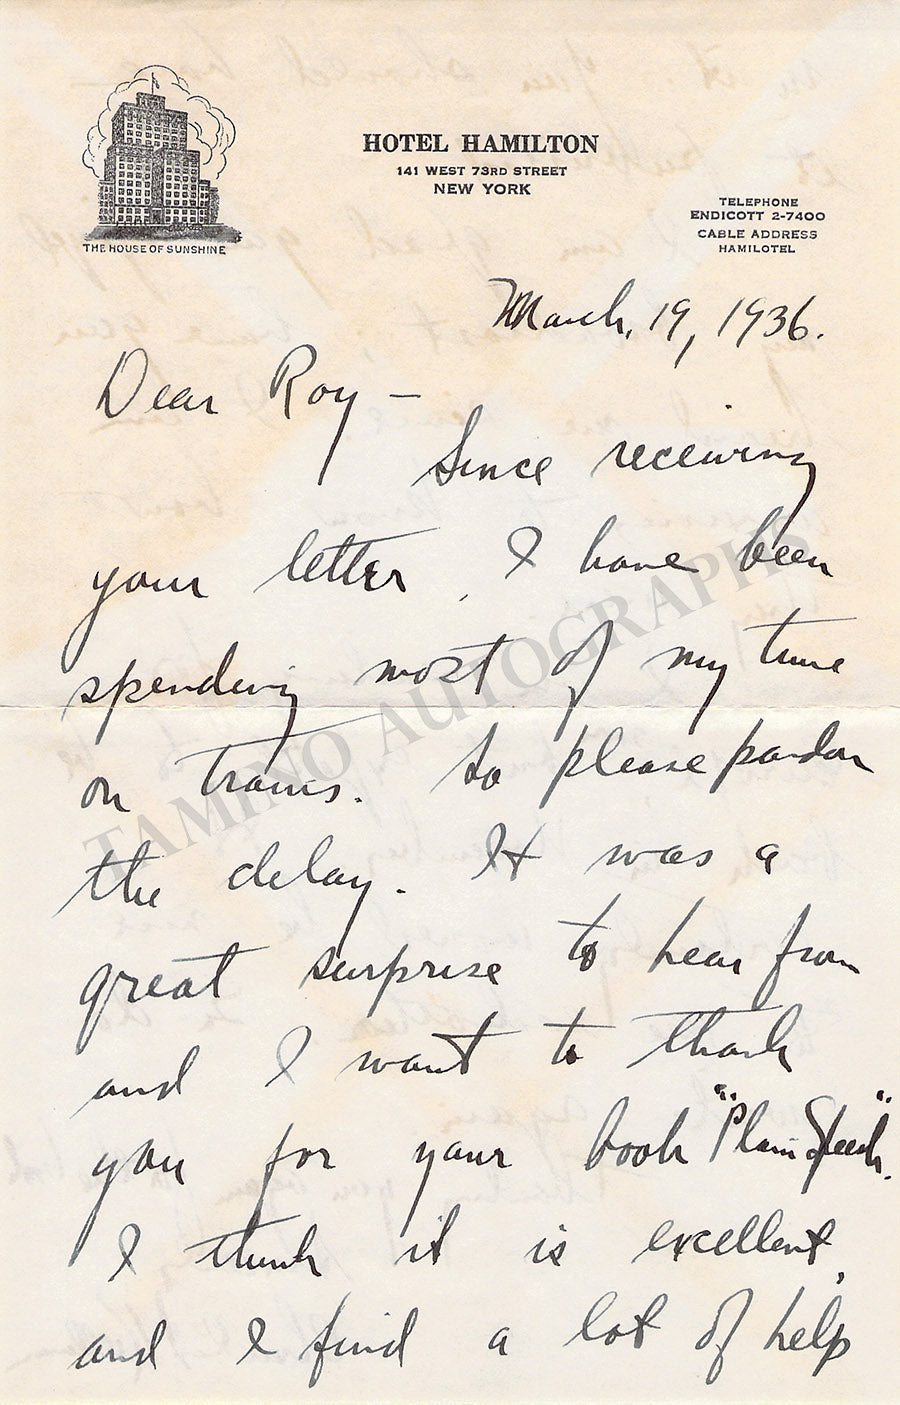 HOTEL HAMILTON
141 WEST 73RD STREET
NEW YORK
THE HOUSE OF SUNSHINE
TELEPHONE
ENDICOTT 2-7400
CABLE ADDRESS
HAMILOTEL
March, 19, 1936.
Dear Roy –
Since receiving
your letter, I have been
spending most of my time
on trains. So please pardon
the delay. It was a
great surprise to hear from
and I want to thank
you for your book "Plain Speech".
I think it is excellent,
and I find a lot of help
TAMINO AUTOGRAPHS